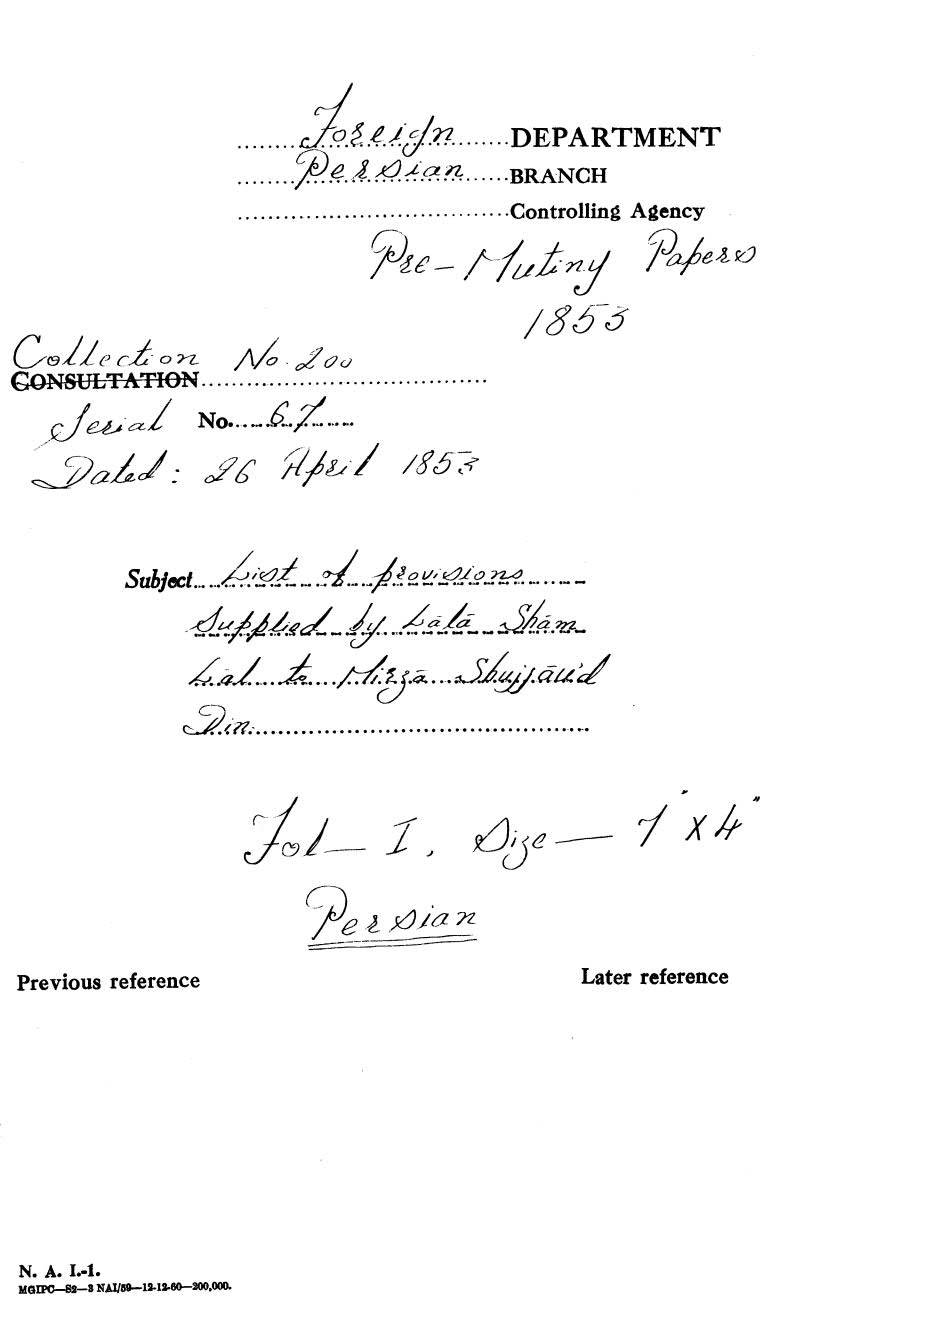 Foreign DEPARTMENT
Persian BRANCH
Controlling Agency
Pre-Mutiny Papers
1853
Collection No. 200
CONSULTATION
Serial No. 67
Dated: 26 April 1853
Subject List of provisions
Supplied by Lālā Shām
Lal to Mirzā Shujjāu'd
Din
Fol— I. Size— 7" X 4"
Persian
Previous reference Later reference
N. A. I.-1.
MGIPC—S2—3 NAI/59—12-12-60—200,000.